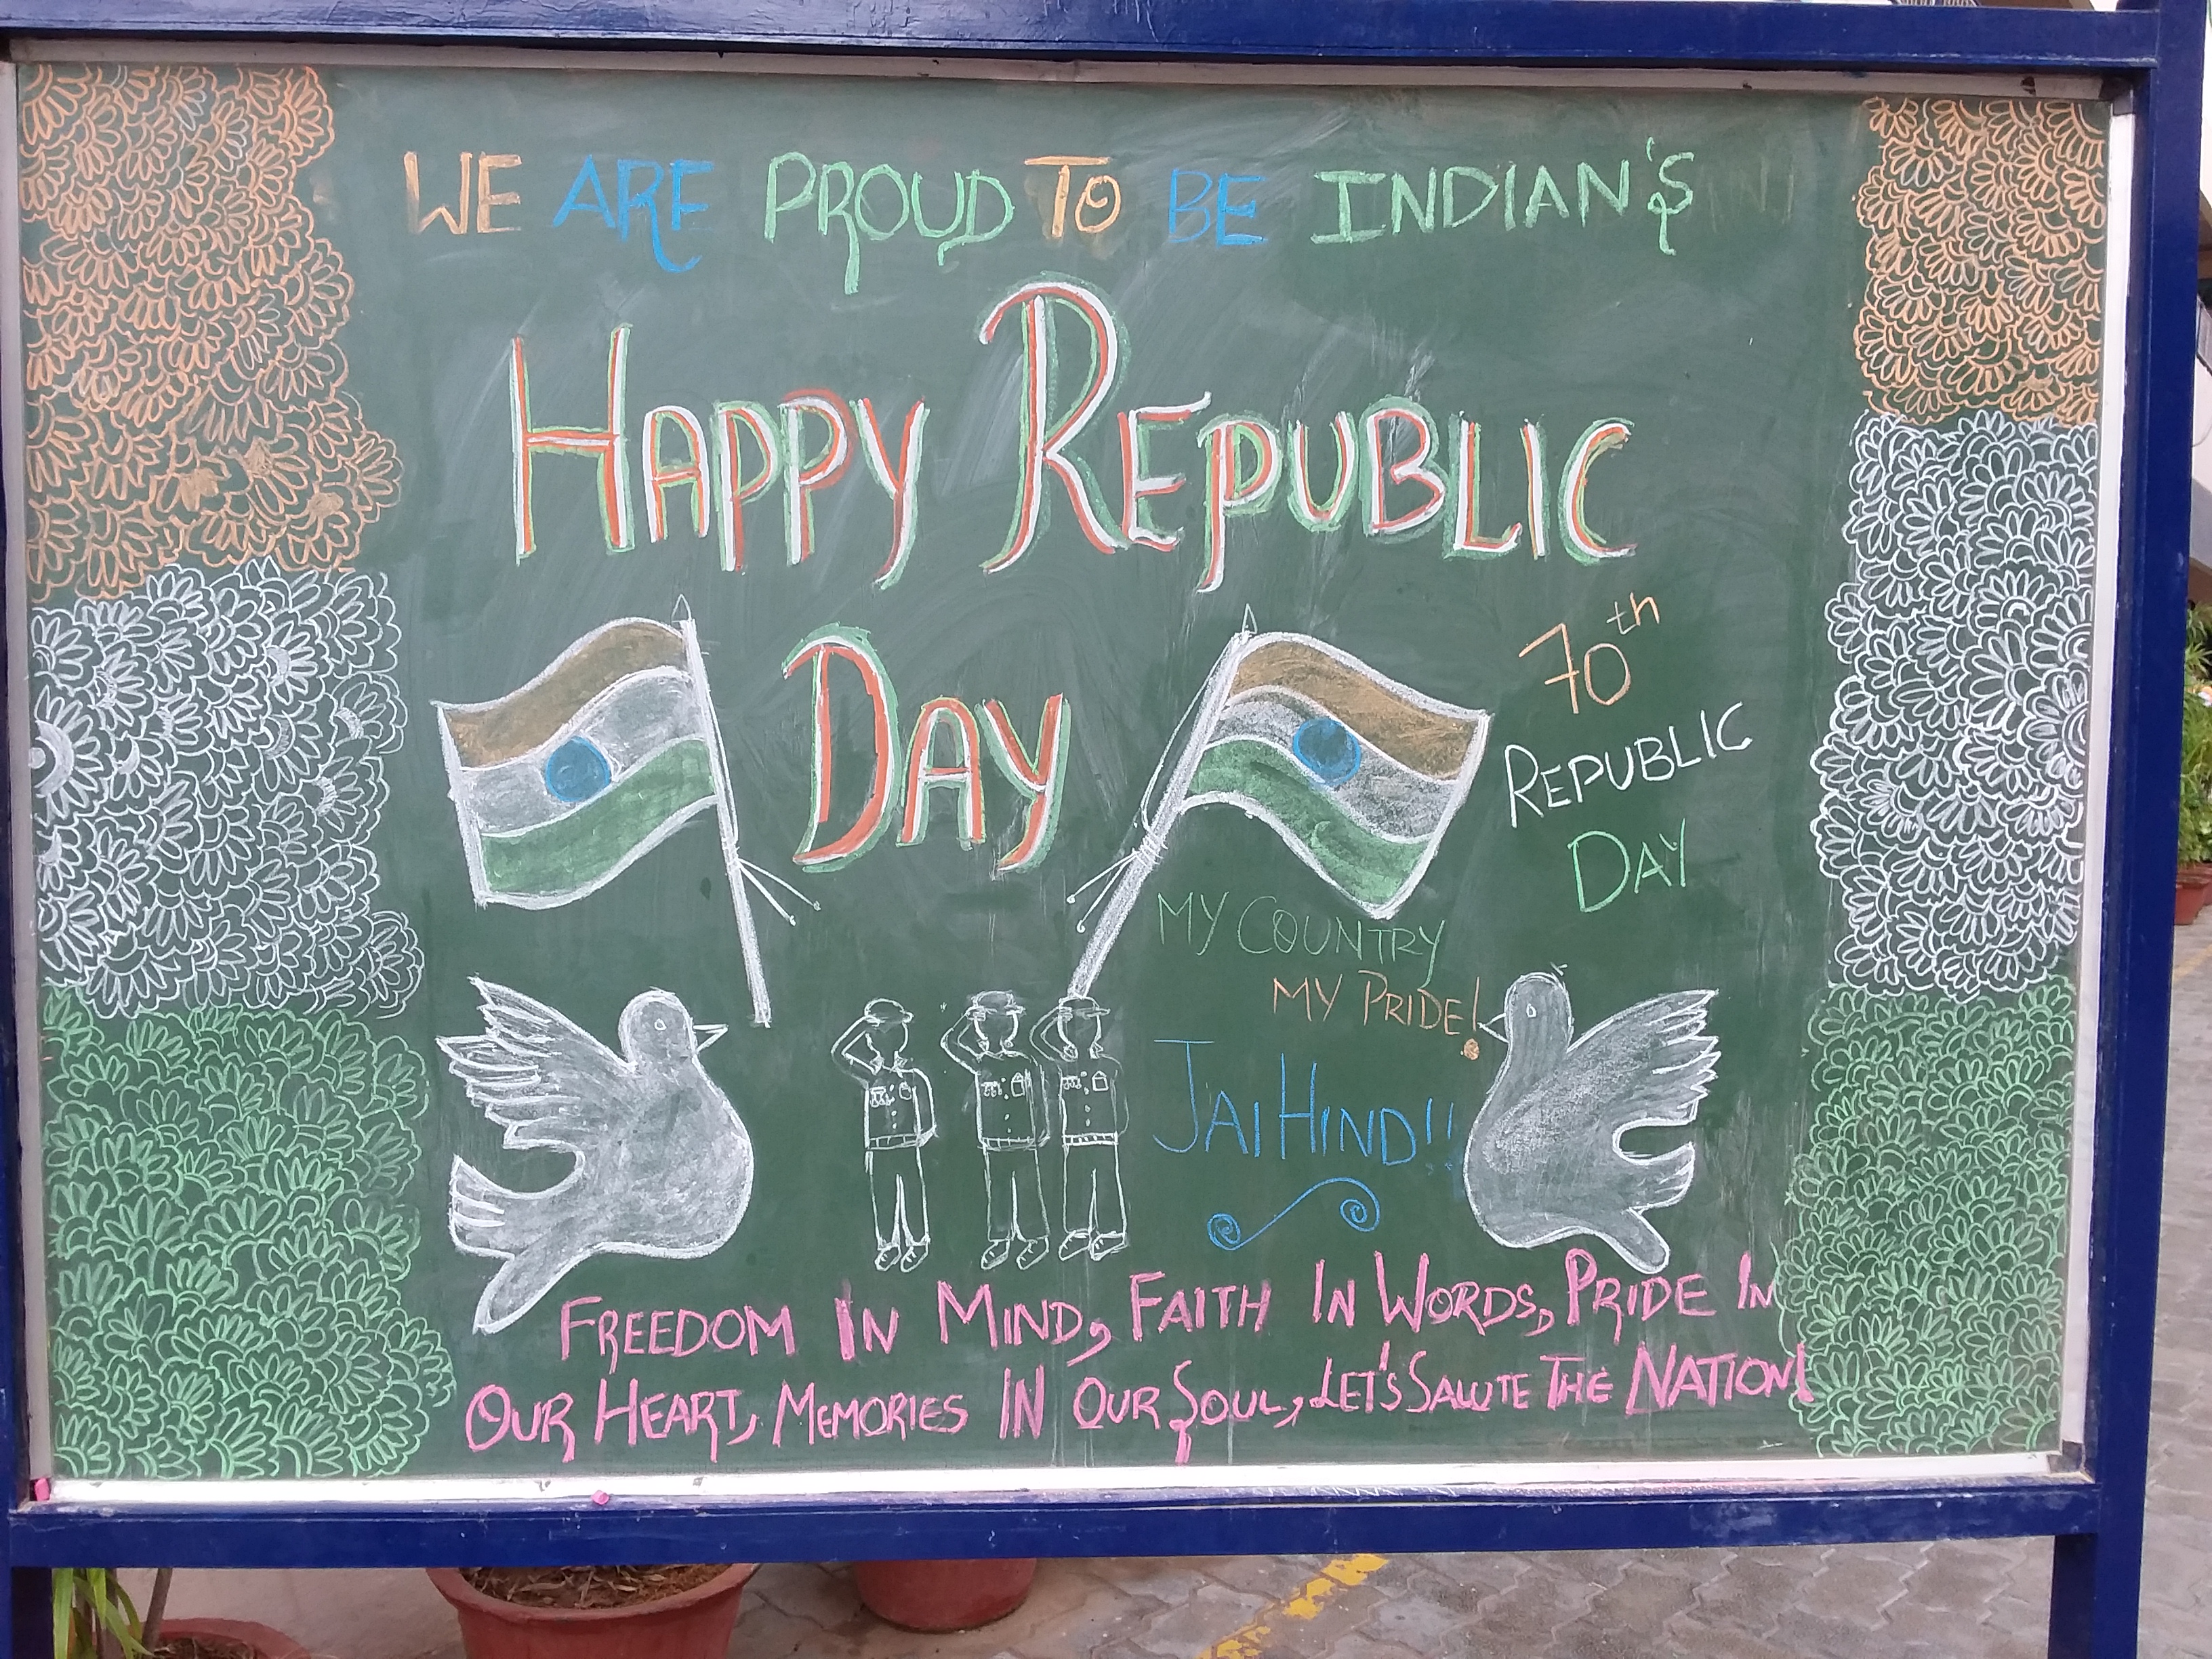 WE ARE PROUD TO BE INDIAN'S
HAPPY REPUBLIC
DAY
70th
REPUBLIC
DAY
MY COUNTRY
MY PRIDE!
JAI HIND!!
FREEDOM IN MIND, FAITH IN WORDS, PRIDE IN
OUR HEART, MEMORIES IN OUR SOUL, LET'S SALUTE THE NATION!